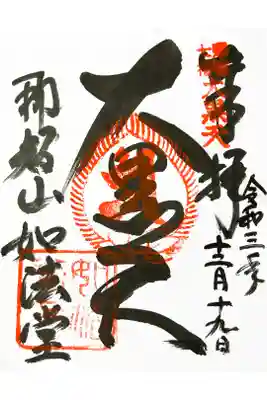 奉拝
令和三年
十二月十九日
大黒天
那智山如法堂